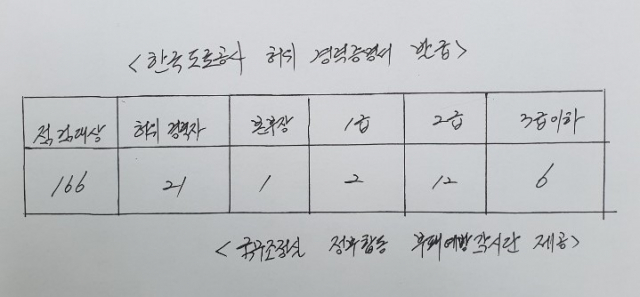 <한국도로공사 허위 경력증명서 발급>
점검대상 허위 경력자 본부장 1급 2급 3급이하
166 21 1 2 12 6
<국무조정실 정부합동 부패예방감시단 제공>